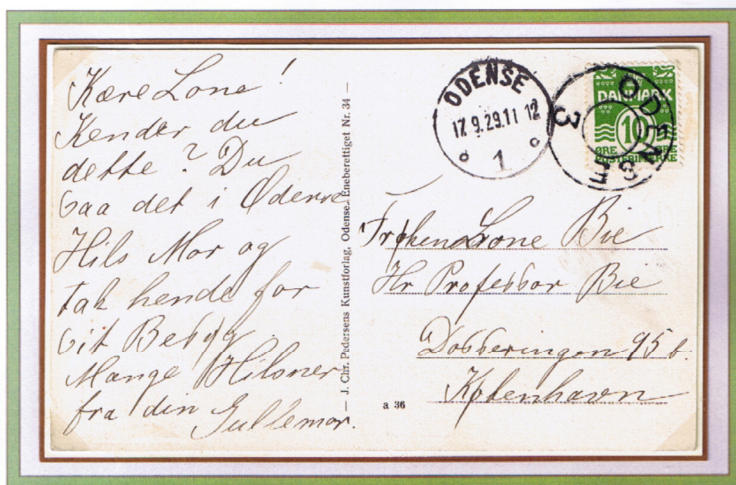 Kære Lone!
Kender du
dette? Du
saa det i Odense
Hils Mor og
tak hende for
sit Besøg.
Mange Hilsner
fra din Gullemor.
— J. Chr. Pedersens Kunstforlag, Odense. Eneberettiget Nr. 34 —
a 36
ODENSE
17.9.29.11 12
1
ODENSE
3
DANMARK
10
ØRE ØRE
POSTFRIMÆRKE
Frøken Lone Bie
Hr Professor Bie
Dosseringen 95 b.
København